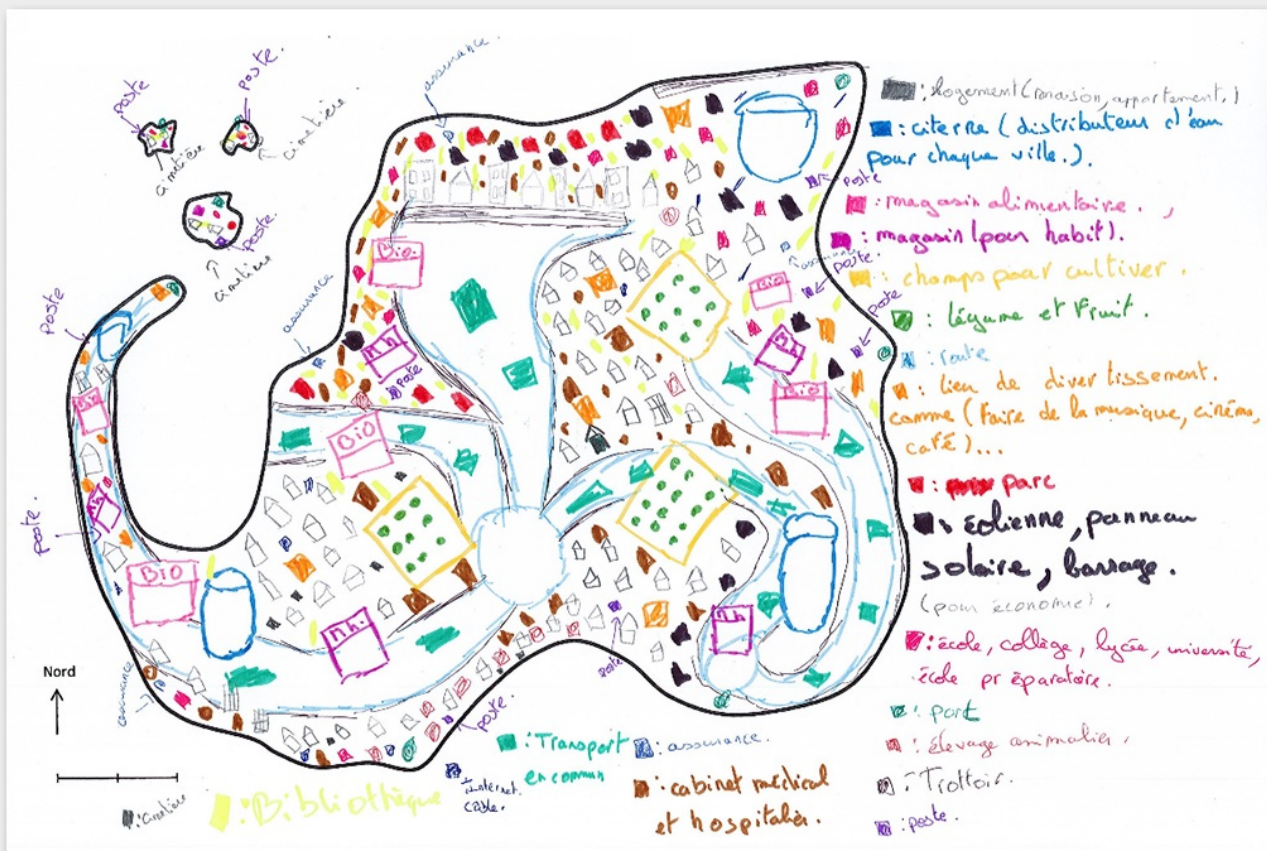 poste
poste.
assurance.
cimetière
cimetière.
poste
cimetière
Poste
assurance
Bio.
m.h
Poste
Bio
poste.
BiO
m.h.
assurance
Nord
poste
assurance
poste.
Poste
Bio
m.h
BiO
m.h
Poste
poste.
: logement (maison, appartement.)
: citerne (distributeur d'eau
pour chaque ville.).
: magasin alimentaire. ,
: magasin (pour habit).
: champs pour cultiver.
: légume et Fruit.
: route
: lieu de divertissement.
comme (faire de la musique, cinéma,
café)...
: parc
: éolienne, panneau
solaire, barrage.
(pour économie).
: école, collège, lycée, université,
école préparatoire.
: port
: élevage animalier.
: Trottoir.
: poste.
: Transport
en commun
: assurance.
: cabinet médical
et hospitalier.
internet
cable.
: Bibliothèque
: cimetière